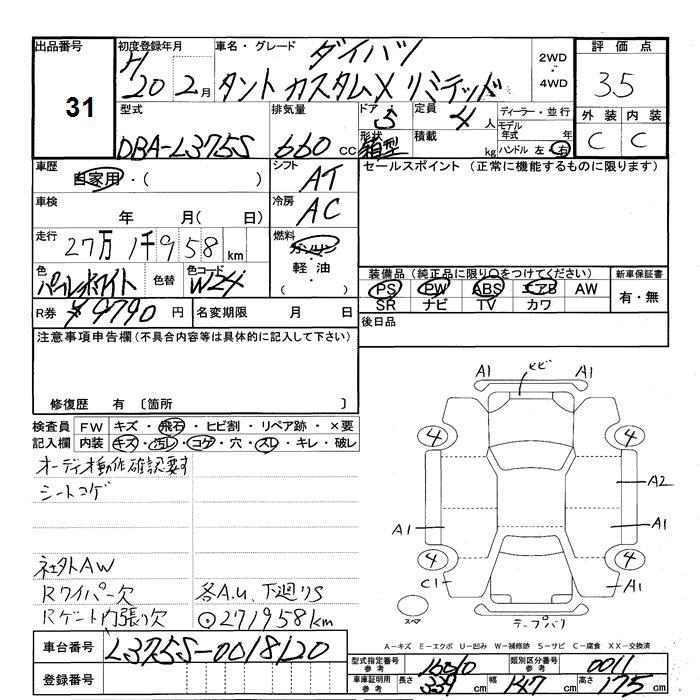 出品番号
31
初度登録年月
H
20 2月
車名・グレード
ダイハツ
タント カスタムX リミテッド
2WD
・
4WD
評価点
3.5
外装 内装
C C
型式
DBA-L375S
排気量
660 cc
ドア・
5
形状
箱型
定員
4 人
積載
kg
ディーラー・並行
モデル
年式 年
ハンドル 左・右
車歴
自家用・( )
シフト
AT
車検
年 月( 日)
冷房
AC
走行
27万 1千958 km
燃料
ガソリン
・
軽油
・
( )
色
パールホワイト
色替
色コード
W24
R券 ¥9790 円
名変期限 月 日
セールスポイント (正常に機能するものに限ります)
装備品 (純正品に限り○をつけてください)
PS PW ABS エアB AW
SR ナビ TV カワ
新車保証書
有・無
後日品
注意事項申告欄(不具合内容等は具体的に記入して下さい)
修復歴 有 〔箇所 〕
検査員
記入欄
FW キズ・飛石・ヒビ割・リペア跡・×要
内装 キズ・汚レ・コゲ・穴・スレ・キレ・破レ
オーディオ動作確認要す
シートコゲ
社外AW
Rワイパー欠
Rゲート内張り欠
各A.U、下廻りS
271958km
A1
ヒビ
A1
4
4
A2
A1
A1
4
4
C1
A1
スペア
テープバリ
A-キズ E-エクボ U-凹み W-補修跡 S-サビ C-腐食 XX-交換済
車台番号 L375S-0018120
登録番号
型式指定番号
参考
16010
類別区分番号
参考
0011
車庫証明用
参考
長さ 339 cm
幅 147 cm
高さ 175 cm